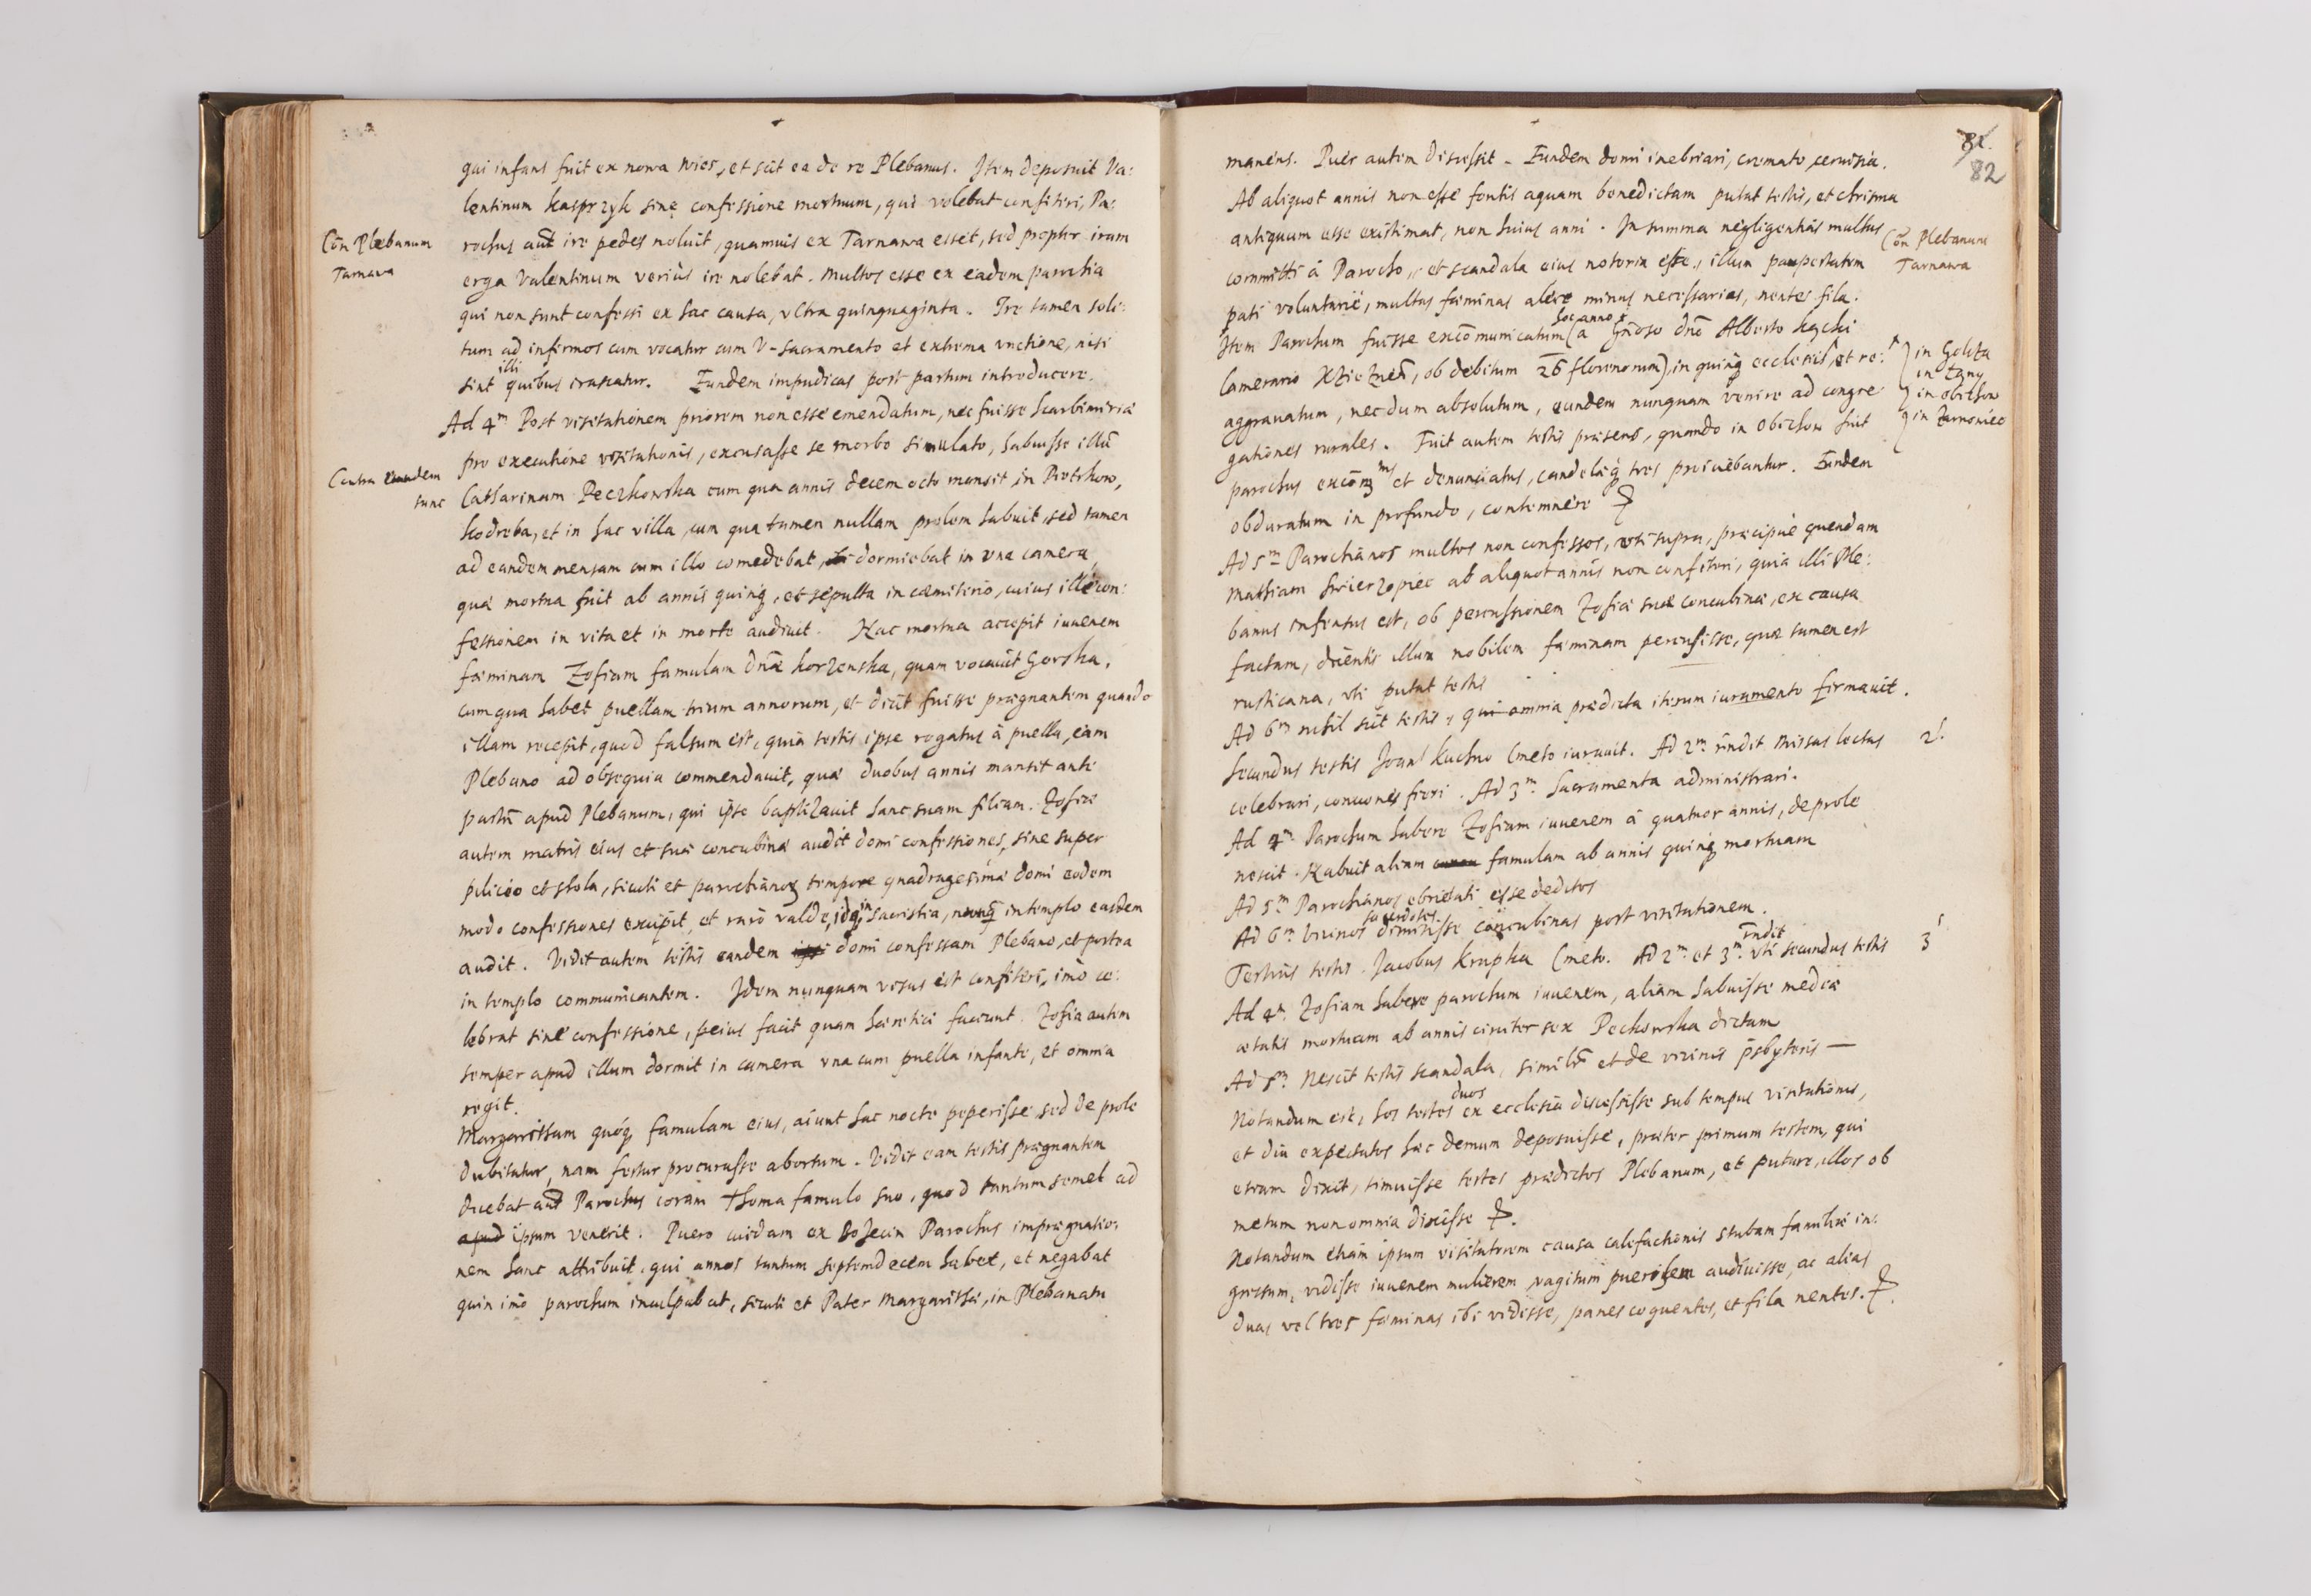 qui infans fuit ex nowa wies, et scit ea de re Plebanus. Item deposuit Va:
lentinum kasprzyk sine confessione mortuum, qui volebat confiteri, Pa:
Con Plebanum
Tarnawa
rochus aut ire pedes noluit, quamuis ex Tarnawa esset, sed propter iram
erga Valentinum verius ire nolebat. Multos esse ex eadem parochia
qui non sunt confessi ex hac causa, vltra quinquaginta. Ire tamen soli:
tum ad infirmos cum vocatur cum V-sacramento et extrema vnctione, nisi
sint illi quibus irascatur. Eundem impudicas post partum introducere.
Ad 4m Post visitationem priorem non esse emendatum, nec fuisse Scarbimiriae
pro executione visitationis, excusasse se morbo simulato, habuisse illu
Contra eundem
tunc
Catharinam Peczkowska cum qua annis decem octo mansit in Piotrkow,
kodreba, et in hac villa, cum qua tamen nullam prolem habuit, sed tamen
ad eandem mensam cum illo comedebat, dormiebat in vna camera,
quae mortua fuit ab annis quinq, et sepulta in caemiterio, cuius ille con:
fessionem in vita et in morte audiuit. Hac mortua accepit iuuenem
faeminam Zofiam famulam dnae korzenska, quam vocauit Gorska,
cum qua habet puellam trium annorum, et dicit fuisse praegnantem quando
illam recepit, quod falsum est, quia testis ipse rogatus à puella, eam
Plebano ad obsequia commendauit, quae duobus annis mansit ante
partu apud Plebanum, qui ipse baptizauit hanc suam filiam. Zofiae
autem matris eius et suae concubinae audit domi confessiones, sine super
pilicio et stola, sicuti et parochianos tempore quadragesimae domi eodem
modo confessiones excipit, et rarò valde, idq in sacristia, nunq in templo easdem
audit. Vidit autem testis eandem domi confessam Plebano, et postea
in templo communicantem. Idem nunquam visus est confiteri, imò ce:
lebrat sine confessione, peius facit quam haeretici faciunt. Zofia autem
semper apud illum dormit in camera vna cum puella infante, et omnia
regit.
Margaritham quoq, famulam eius, aiunt hac nocte peperisse, sed de prole
dubitatur, nam fertur procurasse abortum. Vidit eam testis praegnantem
dicebat aut Parochus coram Thoma famulo suo, quod tantum semel ad
apud ipsum venerit. Puero cuidam ex Parochus impraegnatio:
nem hanc attribuit, qui annos tantum septemdecem habet, et negabat
quin imò parochum inculpabat, sicuti et Pater Margarithae, in Plebanatu
81.
82
manens. Puer autem discessit. Eundem domi inebriari, cremato, ceruisia.
Ab aliquot annis non esse fontis aquam benedictam putat testis, et chrisma
antiquum esse existimat, non huius anni. In summa negligentias multas
Con Plebanum
Tarnawa
committi à Parocho, et scandala eius notoria esse, illum paupertatem
pati voluntariè, multas faeminas alere minus necessarias, nentes fila.
Item Parochum fuisse excomunicatum hoc anno (a Gnoso dno Alberto kacki
Camerario Xziezn, ob debitum 26 florenorum) in quinq ecclesiis, et re:
in Golcza
in Tczyc
in obichow
in Zarnowiec
aggrauatum, necdum absolutum, eundem nunquam venire ad congre
gationes rurales. Fuit autem testis praesens, quando in Obichow fuit
parochus excom et denunciatus, candelaeq tres proiiciebantur. Eundem
obduratum in profundo, contemnere
Ad 5m Parochianos multos non confessos, vti supra, praecipuè quendam
Mathiam Swierzopiec ab aliquot annis non confiteri, quia illi Ple:
banus infensus est, ob percussionem Zofiae suae concubinae, ex causa
factam, dicentis illum nobilem faeminam percussisse, quae tamen est
rusticana, vti putat testis
Ad 6m nihil scit testis, qui omnia praedicta iterum iuramento firmauit.
Secundus testis Joan kuchno Cmeto iurauit. Ad 2m rndit Missas lectas
2
celebrari, conciones fieri. Ad 3m Sacramenta administrari.
Ad 4m Parochum habere Zofiam iuuenem à quatuor annis, de prole
nescit. Habuit aliam famulam ab annis quinq mortuam
Ad 5m Parochianos ebrietati esse deditos
Ad 6m Vicinos sacerdotes dimisisse concubinas post visitationem.
Tertius testis Jacobus krupka Cmeto. Ad 2m et 3m rndit vti secundus testis
3
Ad 4m Zofiam habere parochum iuuenem, aliam habuisse mediae
aetatis mortuam ab annis circiter sex Peckowska dictam
Ad 5m Nescit testis scandala, similr et de vicinis psbyteris —
Notandum est, hos testes duos ex ecclesia discessisse sub tempus visitationis,
et diu expectatos hac demum deposuisse, praeter primum testem, qui
etiam dixit, timuisse testes praedictos Plebanum, et putare, illos ob
metum non omnia dixisse
Notandum etiam ipsum visitatorem causa calefactionis stubam familiae in:
gressum, vidisse iuuenem mulierem, vagitum puerilem audiuisse, ac alias
duas vel tres faeminas ibi vidisse, panes coquentes, et fila nentes.